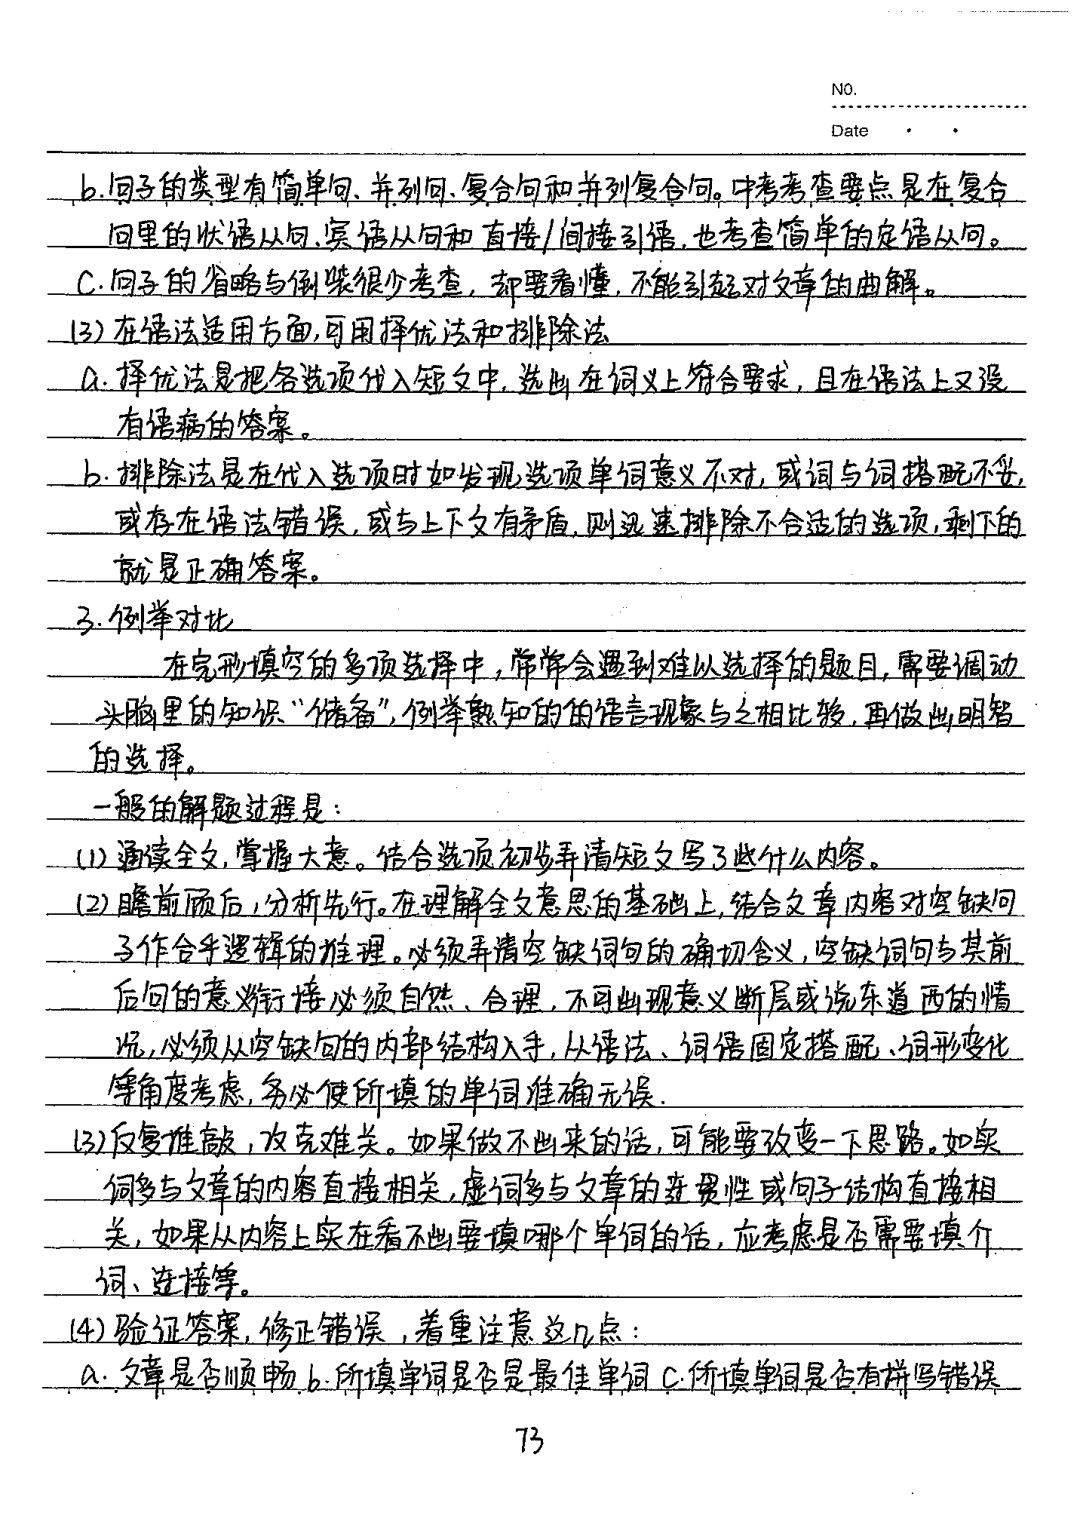 NO.
Date
b.句子的类型有简单句、并列句、复合句和并列复合句。中考考查要点是在复合
句里的状语从句、宾语从句和直接/间接引语,也考查简单的定语从句。
C.句子的省略与倒装很少考查,却要看懂,不能引起对文章的曲解。
(3)在语法适用方面,可用择优法和排除法
a.择优法是把各选项代入短文中,选出在词义上符合要求,且在语法上又没
有语病的答案。
b.排除法是在代入选项时如发现选项单词意义不对,或词与词搭配不妥,
或存在语法错误,或与上下文有矛盾,则迅速排除不合适的选项,剩下的
就是正确答案。
3.例举对比
在完形填空的多项选择中,常常会遇到难以选择的题目,需要调动
头脑里的知识“储备”,例举熟知的的语言现象与之相比较,再做出明智
的选择。
一般的解题过程是:
(1)通读全文,掌握大意。结合选项初步弄清短文写了些什么内容。
(2)瞻前顾后,分析先行。在理解全文意思的基础上,结合文章内容对空缺词
予作合乎逻辑的推理。必须弄清空缺词句的确切含义,空缺词句与其前
后句的意义衔接必须自然、合理,不可出现意义断层或说东道西的情
况,必须从空缺句的内部结构入手,从语法、词语固定搭配、词形变化
等角度考虑,务必使所填的单词准确无误.
(3)反复推敲,攻克难关。如果做不出来的话,可能要改变一下思路。如实
词多与文章的内容直接相关,虚词多与文章的连贯性或句子结构直接相
关,如果从内容上实在看不出要填哪个单词的话,应考虑是否需要填介
词、连接等。
(4)验证答案,修正错误,着重注意这几点:
a.文章是否顺畅 b.所填单词是否是最佳单词 C.所填单词是否有拼写错误
73